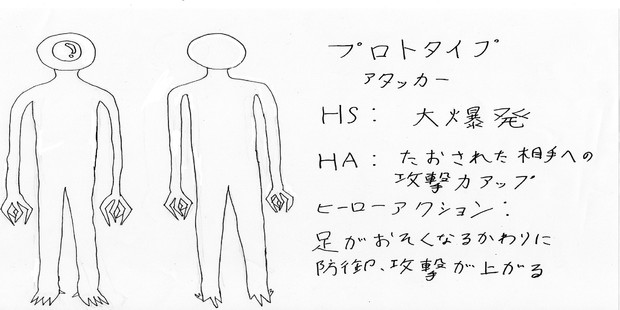 プロトタイプ
アタッカー
HS: 大爆発
HA: たおされた相手への
攻撃力アップ
ヒーローアクション:
足がおそくなるかわりに
防御、攻撃が上がる